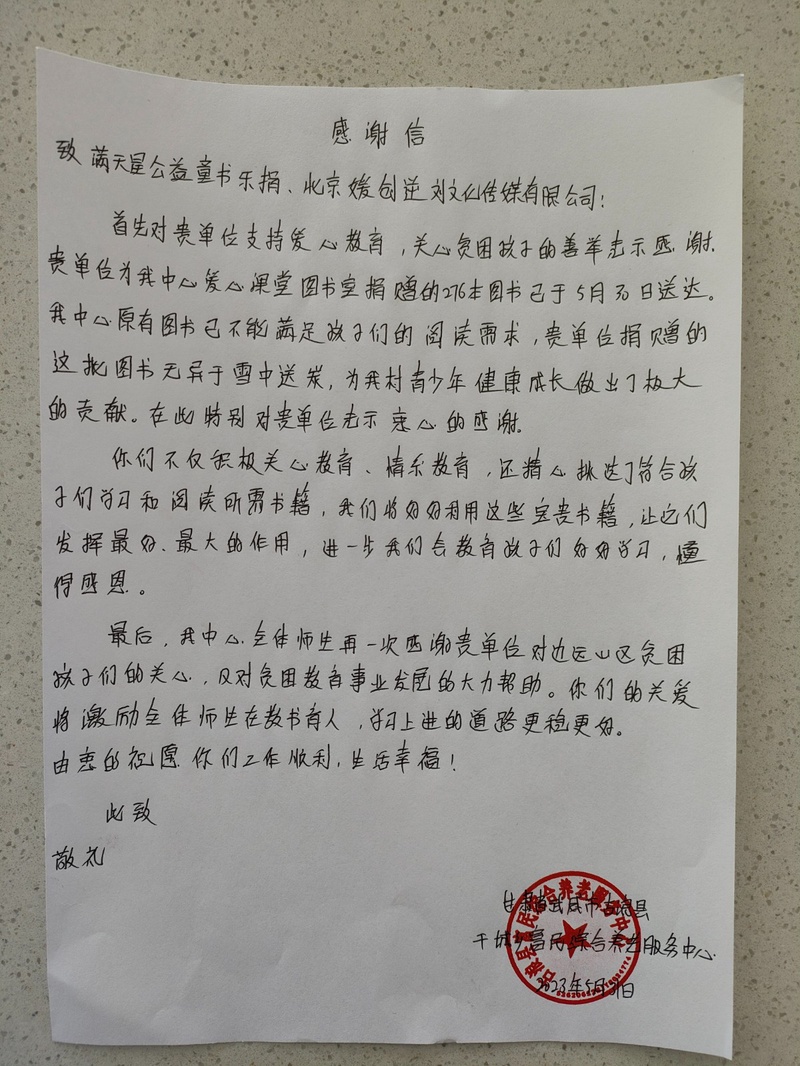 感谢信
致 满天星公益童书乐捐、北京媛创逆刘文化传媒有限公司:
首先对贵单位支持爱心教育,关心贫困孩子的善举表示感谢.
贵单位为我中心爱心课堂图书室捐赠的276本图书已于5月30日送达。
我中心原有图书已不能满足孩子们的阅读需求,贵单位捐赠的
这批图书无异于雪中送炭,为我村青少年健康成长做出了极大
的贡献。在此特别对贵单位表示衷心的感谢.
你们不仅积极关心教育、情系教育,还精心挑选了符合孩
子们学习和阅读所需书籍,我们将好好利用这些宝贵书籍,让它们
发挥最好、最大的作用,进一步我们会教育孩子们好好学习,懂
得感恩。
最后,我中心全体师生再一次感谢贵单位对边远山区贫困
孩子们的关心,及对贫困教育事业发展的大力帮助。你们的关爱
将激励全体师生在教书育人,学习上进的道路更稳更好。
由衷的祝愿你们工作顺利,生活幸福!
此致
敬礼
甘肃省武威市古浪县
富民综合养老服务中心
2023年5月31日